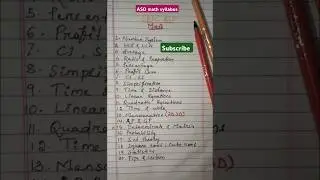 ASO math syllabus
Math
Subscribe
1. Number System
2. HCF & LCM
3. Average
4. Ratio & Proportion
5. Percentage
6. Profit & Loss
7. CI, SI
8. Simplification
9. Time & Distance
10. Linear Equations
11. Quadratic Equations
12. Time & Work
13. Mensuration (2D, 3D)
14. AP & GP
15. Determinants & Matrix
16. Probability
17. Set Theory
18. Square root & Cube root
19. Statistics
20. Pipe & Cistern
6. Profit
8. Simplifi
9. Time &
10. Linear
11. Quadra
12. Time
13. Mensu